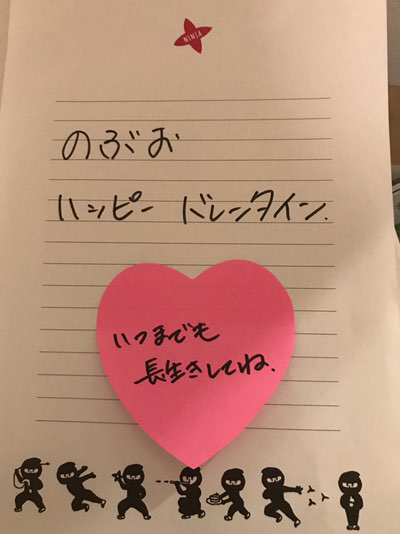 NINJA
のぶお
ハッピー バレンタイン.
いつまでも
長生きしてね.